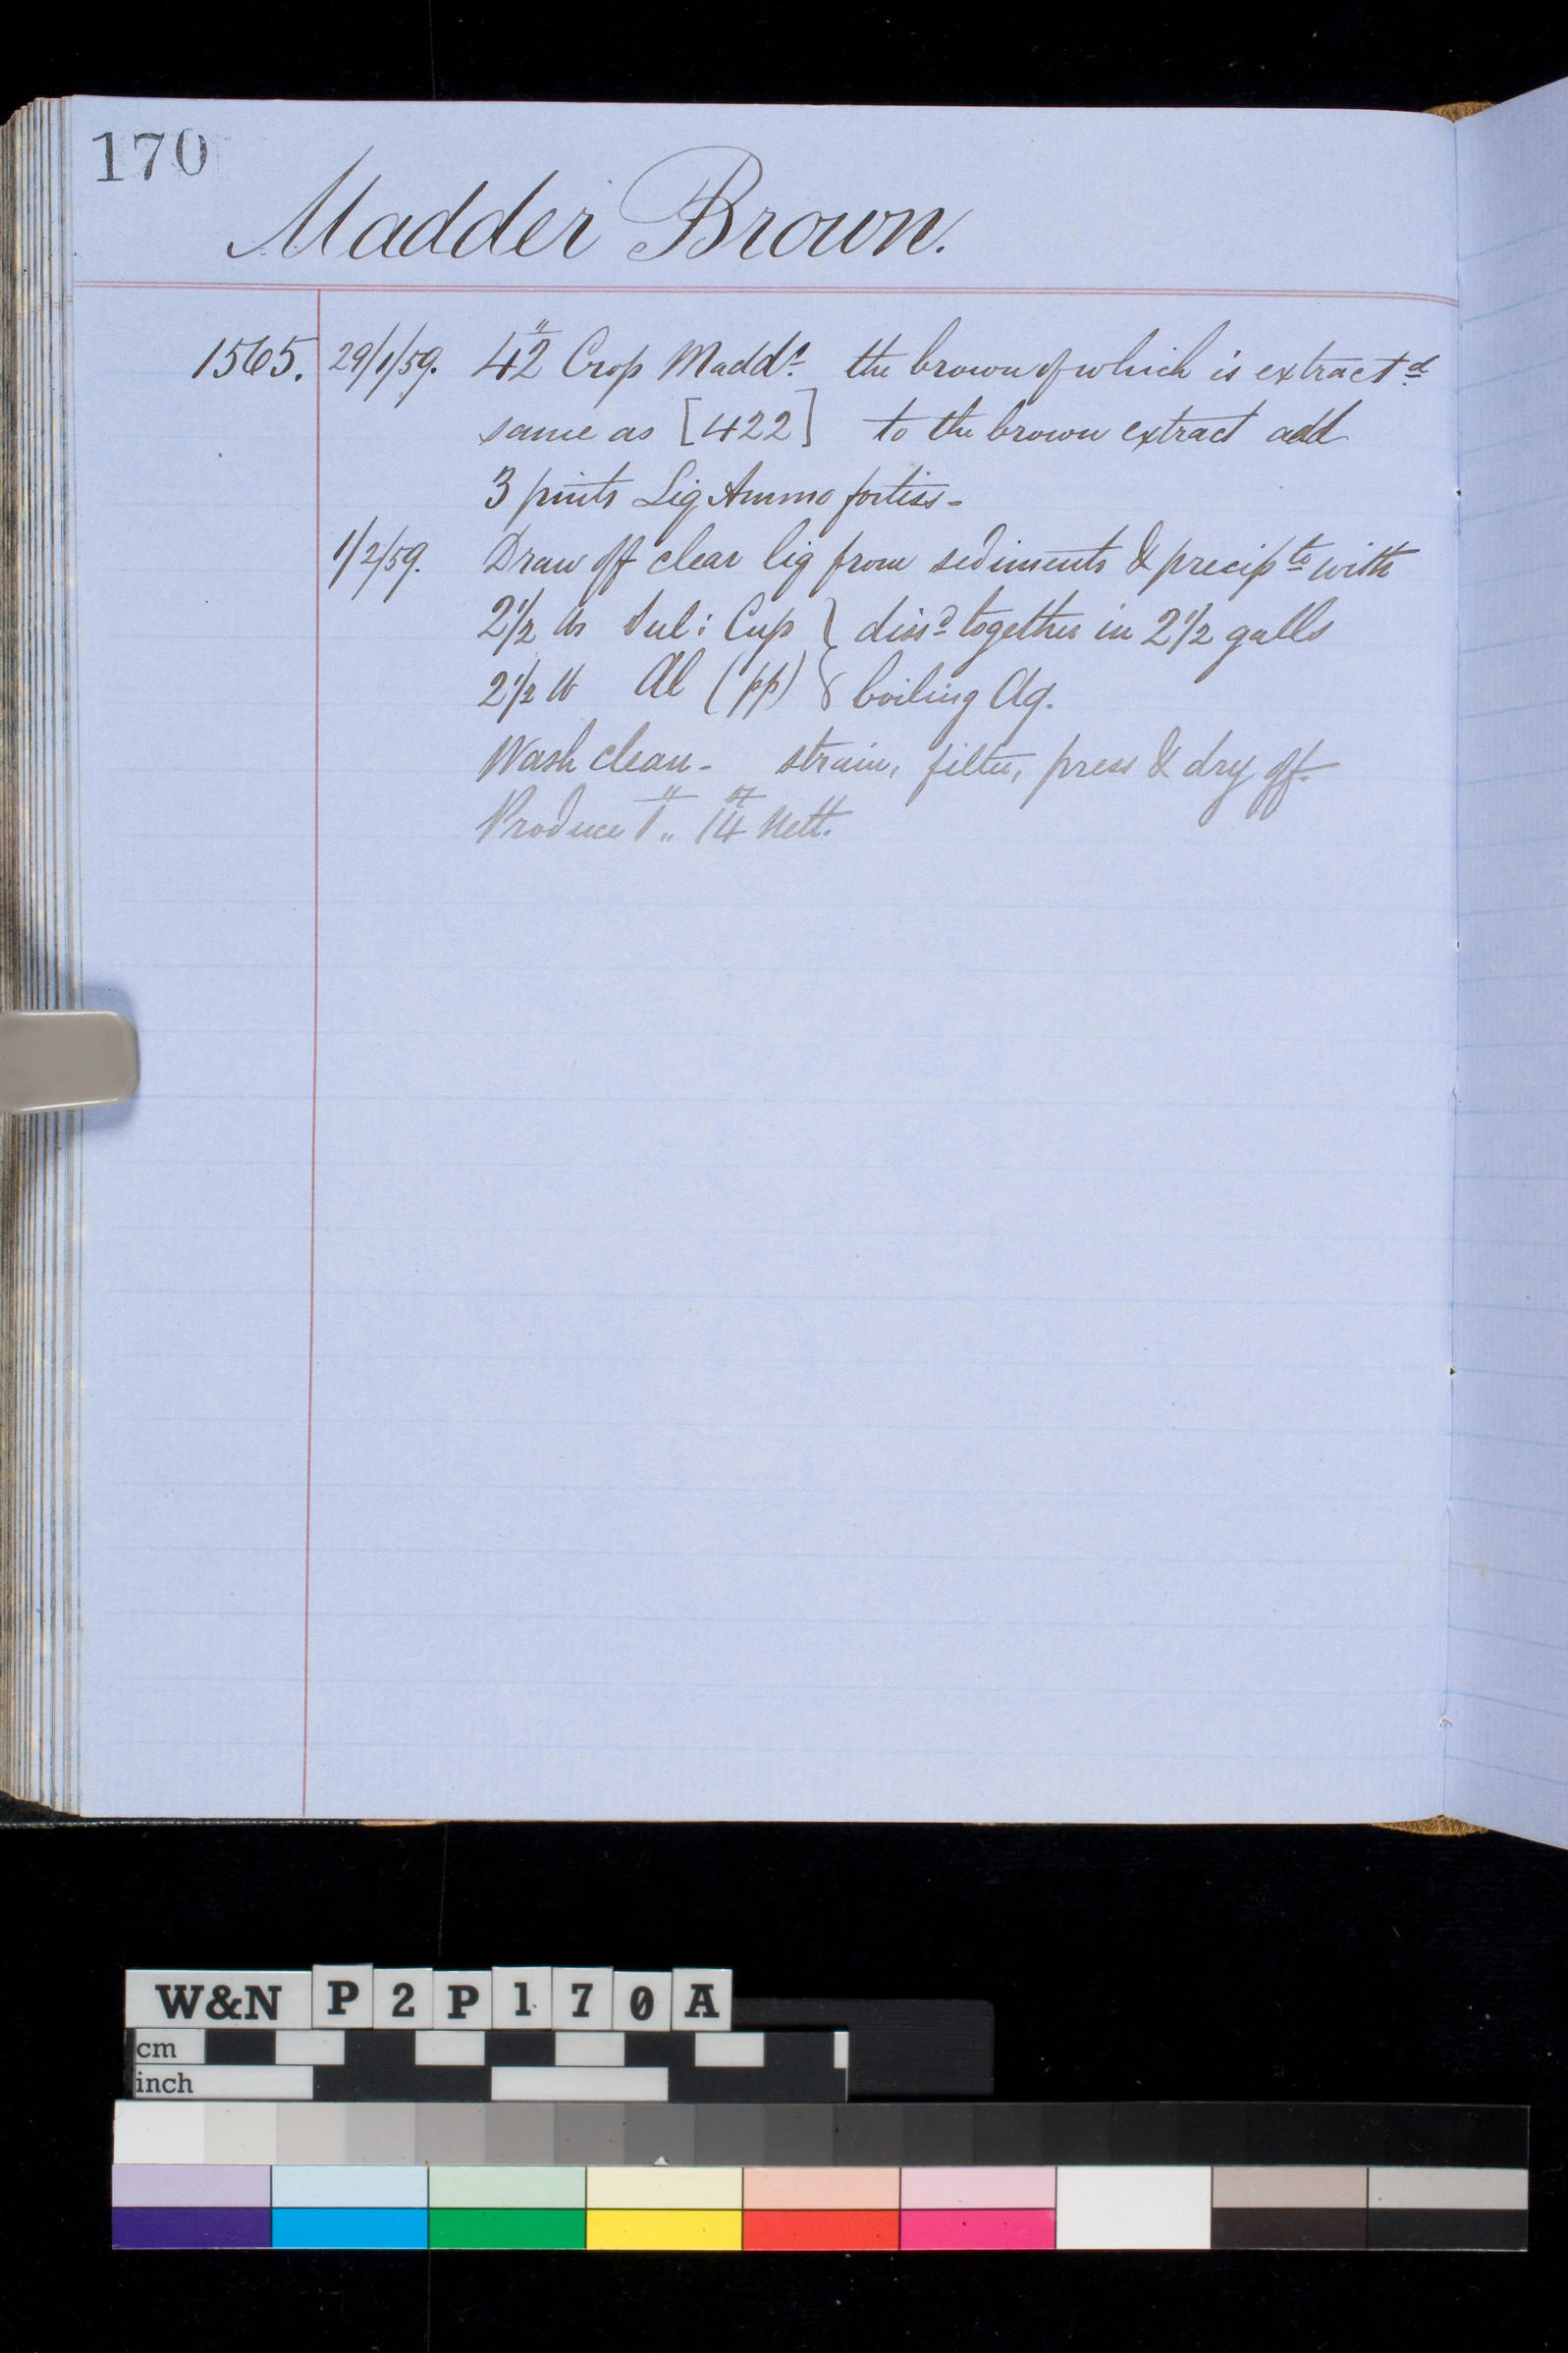 170
Madder Brown.
1565. 29/1/59. 42" Crop Maddr. the brown of which is extractd
same as [422] to the brown extract add
3 pints Liq Ammo fortiss-
1/2/59. Draw off clear liq from sediments & precipte with
2½ lbs Sul: Cup } dissd together in 2½ galls
2½ lb Al (pp) } boiling Aq.
Wash clean- strain, filter, press & dry off.
Produce 1" .. 14 Nett.
W&N P2P170A
cm
inch